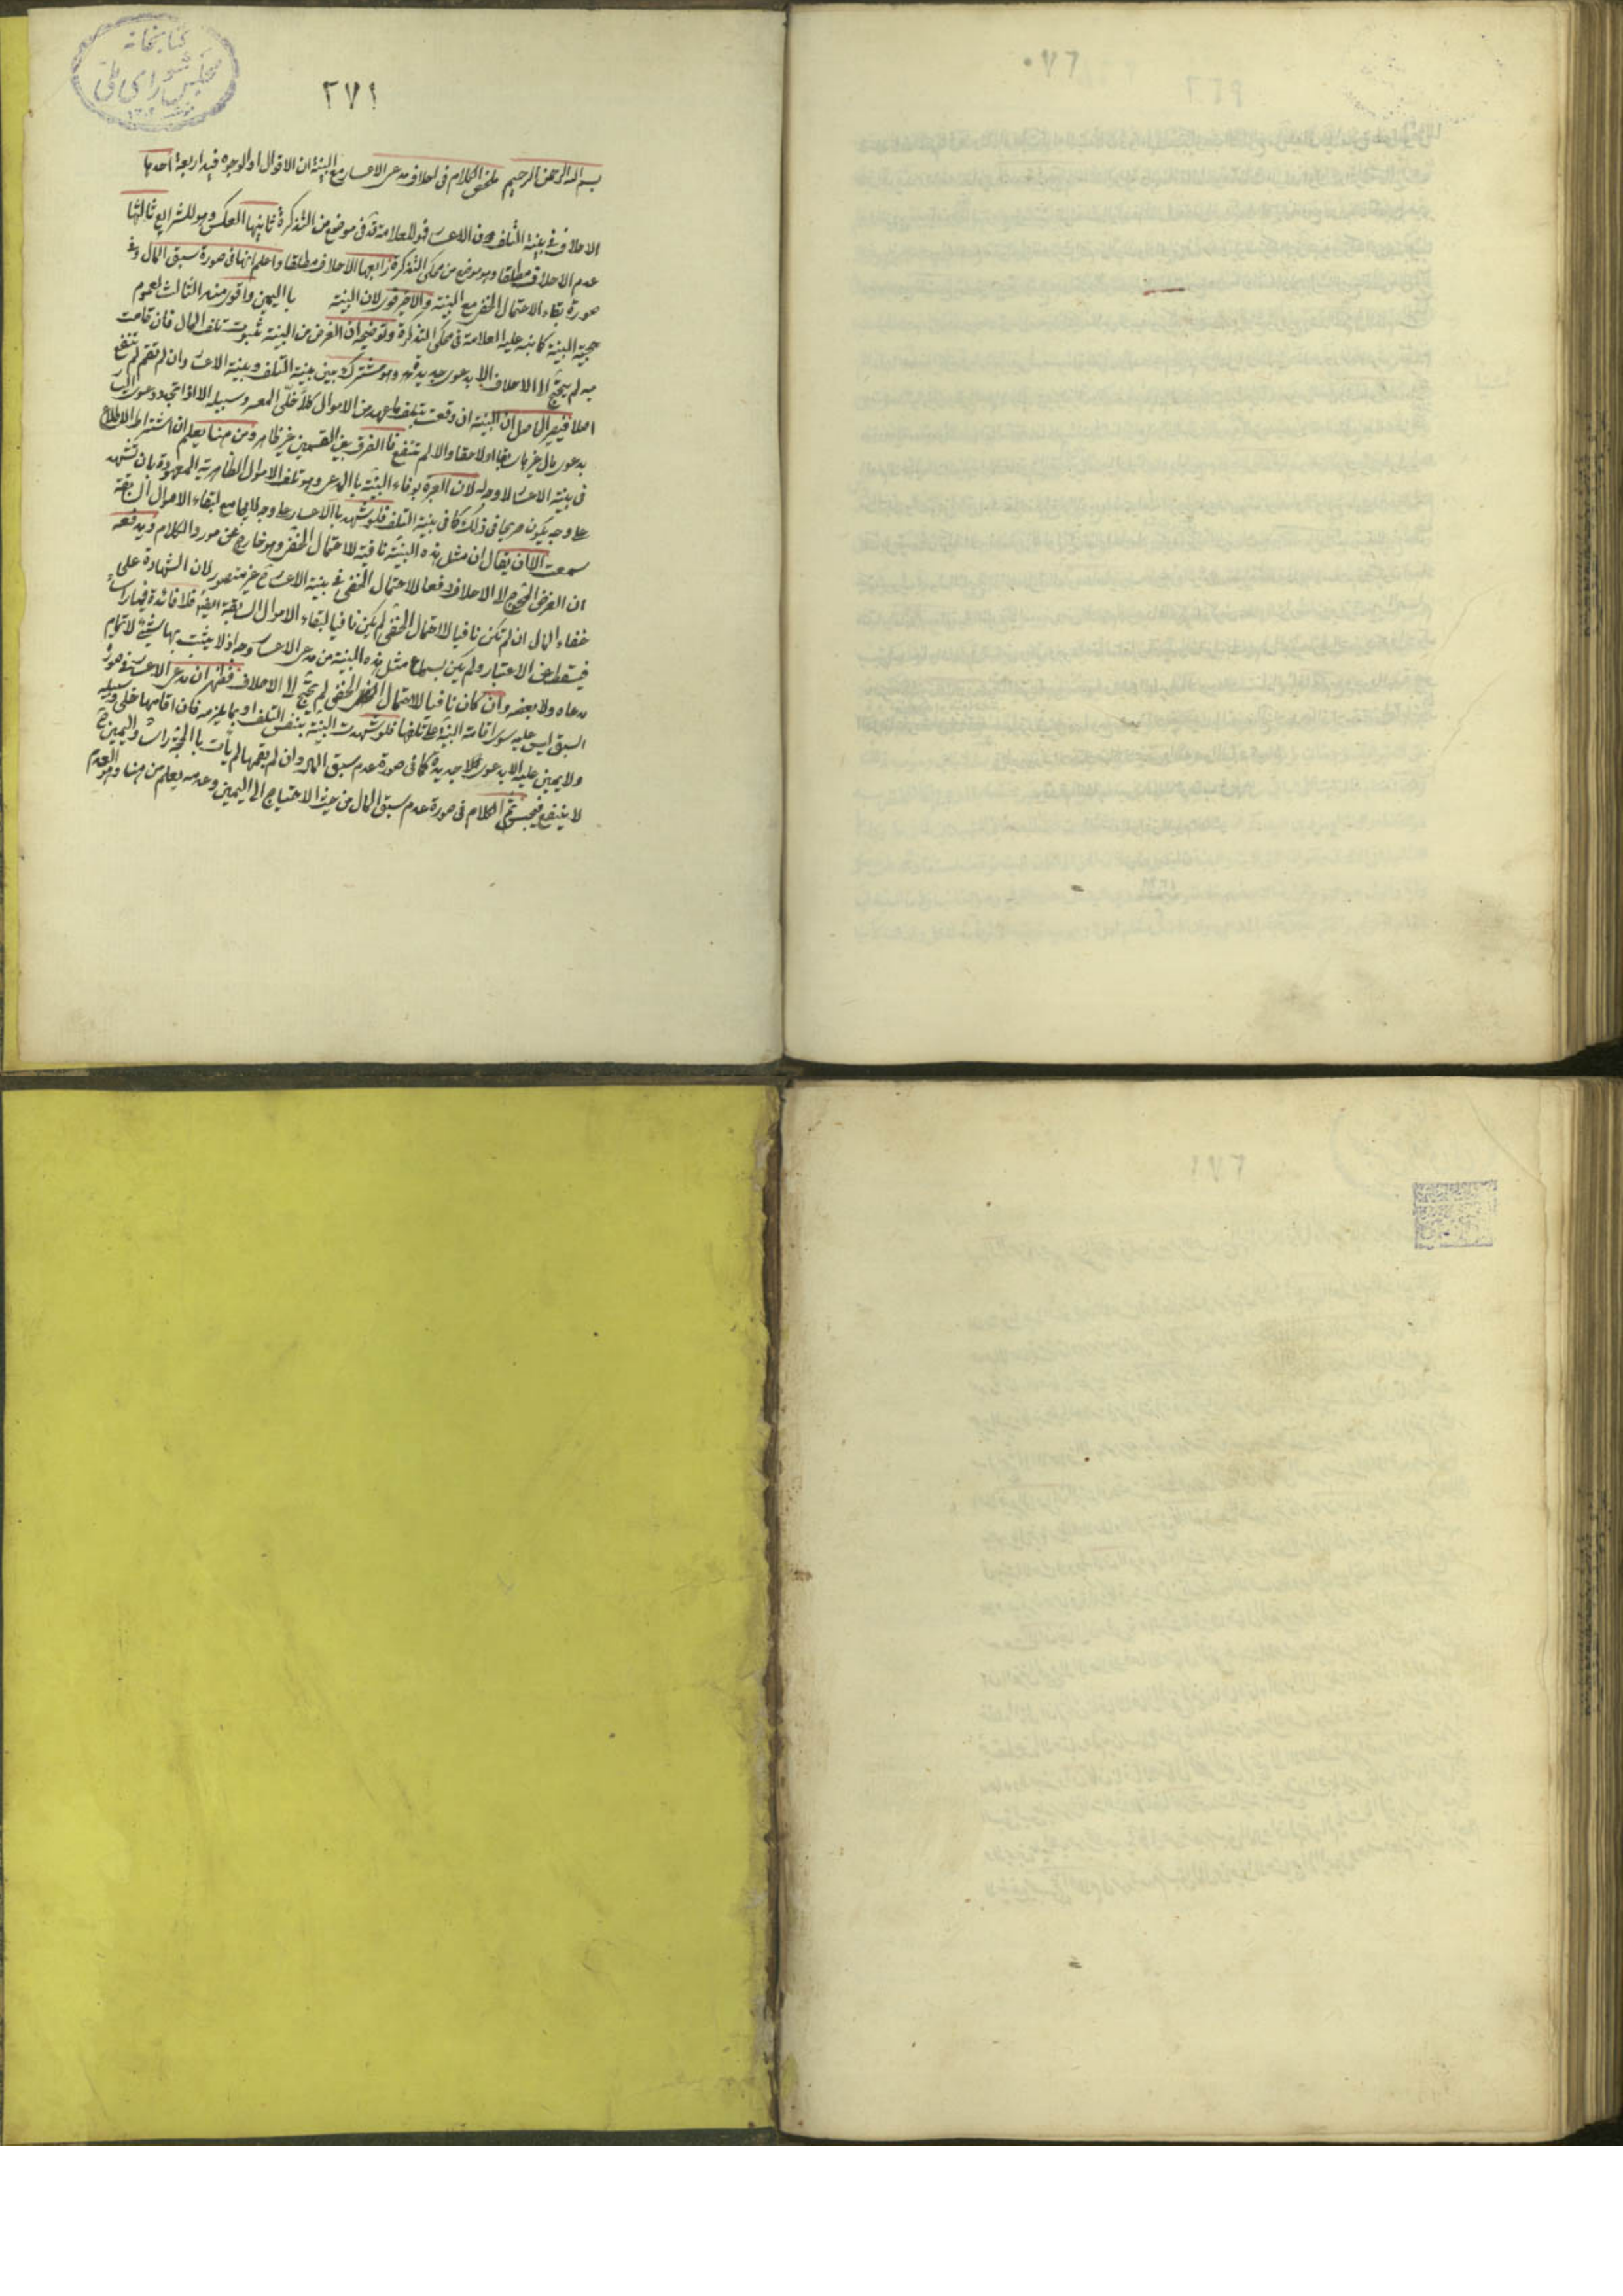 كتابخانه
مجلس شورای ملی
٢٧١
بسم الله الرحمن الرحيم ملخص الكلام في احلاف مدعى الاعسار مع البينة ان الاقوال او الوجوه فيه اربعة احدها
الاحلاف في بينة التلف دون الاعسار فهو للعلامة في موضع من التذكرة ثانيها العكس وهو للشرايع ثالثها
عدم الاحلاف مطلقا وهو موضع من محكى التذكرة رابعها الاحلاف مطلقا واعلم انها في صورة سبق المال وفي
صورة بقاء الاحتمال الخفي مع البينة والاخير قوي لان البينة باليمين واقوى منه الثالث لعموم
حجية البينة كما نبه عليه العلامة في محكى التذكرة وتوضيحه ان الغرض من البينة ثبوت تلف المال فان قامت
به لم يحتج الى الاحلاف الا بدعوى جديدة وهو مشترك بين بينة التلف وبينة الاعسار وان لم تقم لم تنفع
اصلا فيصير الحاصل ان البينة ان وقعت بتلف ما عهد من الاموال كلا خلى المعسر وسبيله الا اذا تجدد دعوى
بدعوى مال غير ما سبقا اولا حقا والا لم تنفع فالفرق بين القسمين غير ظاهر ومن هنا يعلم ان اشتراط الاطلاع
في بينة الاعسار لا وجه له لان العبرة بوفاء البينة بالمدعى وهو تلف الاموال الظاهرية المعهودة بان تشهد
على وجه يكون صريحا في ذلك كما في بينة التلف فلو شهد بالاعسار على وجه لا يجامع لبقاء الاموال السابقة
سمعت الا ان يقال ان مثل هذه البينة نافية للاحتمال الخفي وهو خارج عن مورد الكلام ويدفعه
ان الغرض المحوج الى الاحلاف دفعا للاحتمال الخفي في بينة الاعسار ح غير متصور لان الشهادة على
خفاء المال ان لم تكن نافيا للاحتمال الخفي لم يكن نافيا لبقاء الاموال السابقة ايضا فلا فائدة فيها راسا
فيسقط عن الاعتبار ولم يكن بسماع مثل هذه البينة من مدعى الاعسار وجه اذ لا يثبت بها شيئ لا تمام
مدعاه ولا بعضه وان كان نافيا للاحتمال الخفي لم يحتج الى الاحلاف فظهر ان مدعى الاعسار في صورة
السبق ليس عليه سوى اقامة البينة على تلفها فلو شهدت البينة بنفس التلف او بما يلزمه فان اقامها خلى وسبيله
ولا يمين عليه الا بدعوى جديدة كما في صورة عدم سبق المال وان لم يقمها لم يأت بالحجة راسا واليمين ح
لا ينفع فيحبس ثم الكلام في صورة عدم سبق المال من حيث الاحتياج الى اليمين وعدمه يعلم من هنا وهو العدم